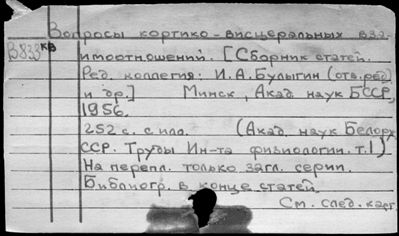 Вопросы кортико-висцеральных вза-
В833кв
имоотношений. [Сборник статей.
Ред. коллегия: И.А.Булыгин (отв.ред)
и др.] Минск, Акад. наук БССР,
1956.
252 с. с илл. (Акад. наук Белорус
ССР. Труды Ин-та физиологии. т.1)
На перепл. только загл. серии.
Библиогр. в конце статей.
См. след. карт.